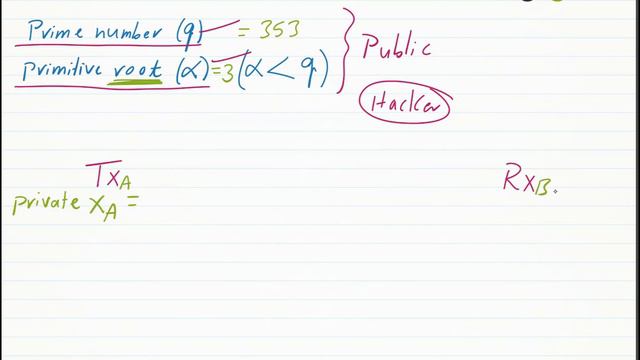 Prime number (q) = 353
primitive root (α) = 3 (α < q)
Public
Hacker
TxA
RxB
private XA =